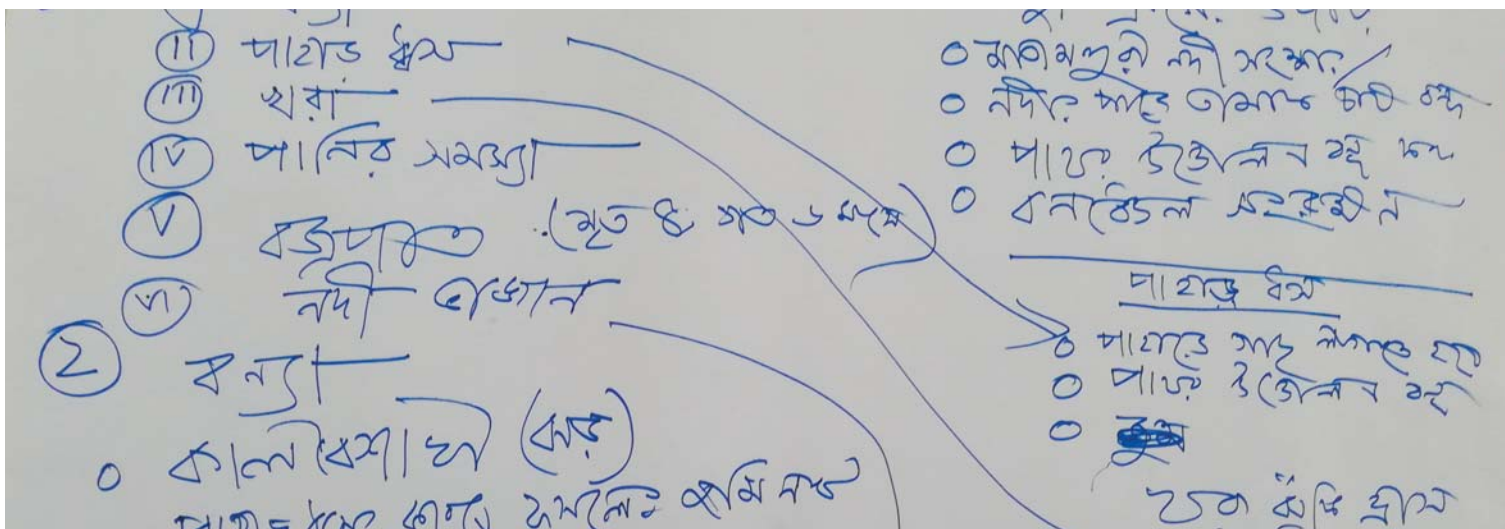 (II) পাহাড় ধ্বস
(III) খরা
(IV) পানির সমস্যা
(V) বজ্রপাত (মৃত ৪ গত ৬ মাসে)
(VI) নদী ভাঙ্গান
(২) বন্যা
০ কালবৈশাখী (ঝড়)
ফসলের জমি নষ্ট
০ মাতামুহুরী নদী সংস্কার
০ নদীর পাড়ে তামাক চাষ বন্ধ
০ পাথর উত্তোলন বন্ধ
০ বনাঞ্চল সংরক্ষন
পাহাড় ধস
০ পাহাড়ে গাছ লাগাতে হবে
০ পাথর উত্তোলন বন্ধ
০
খরা ঝুঁকি হ্রাস